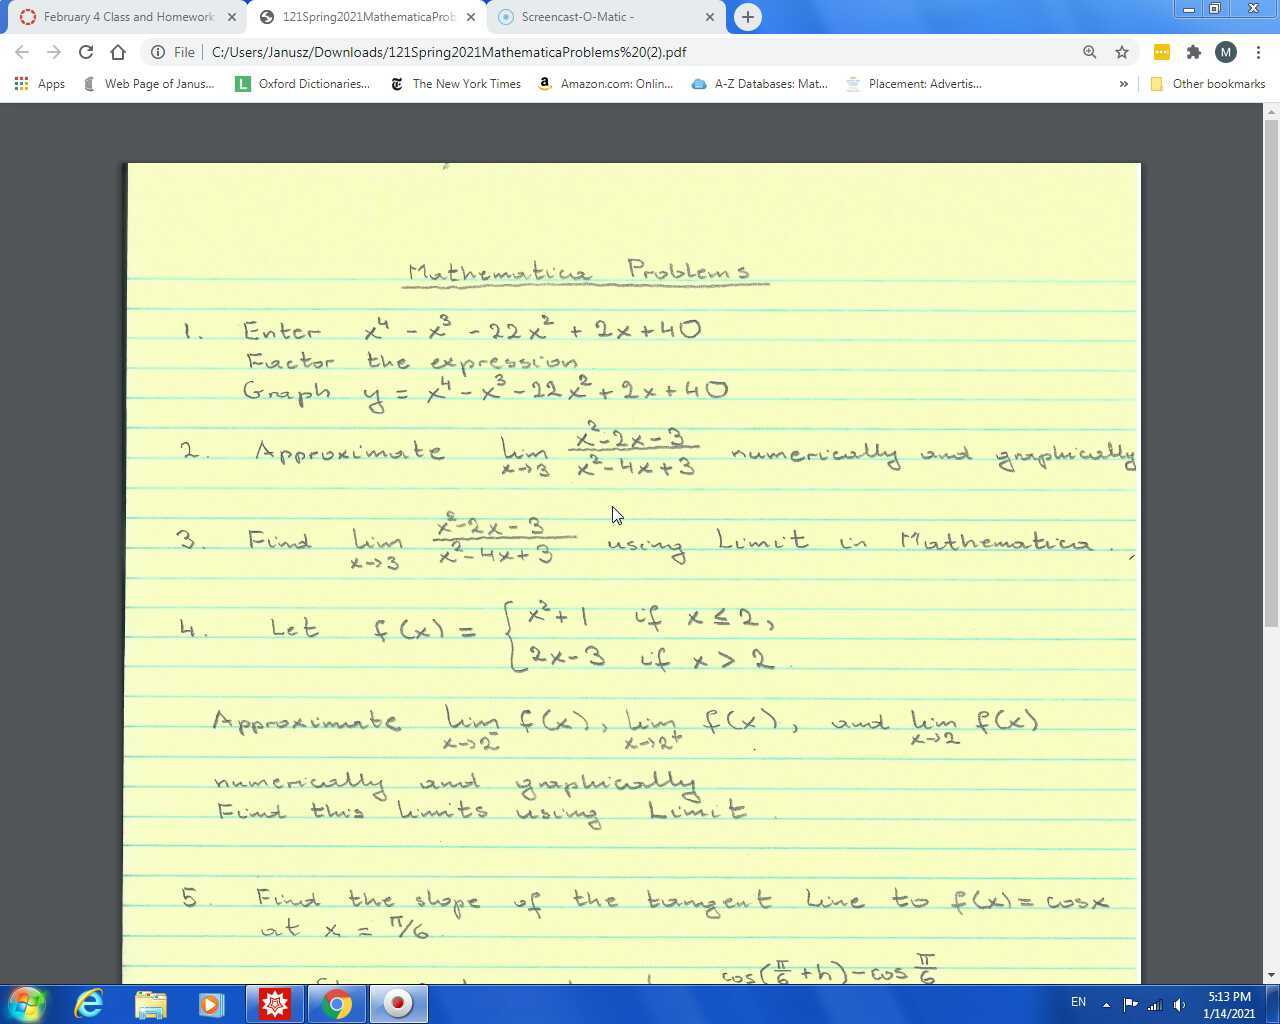 February 4 Class and Homework
121Spring2021MathematicaProb
Screencast-O-Matic -
File C:/Users/Janusz/Downloads/121Spring2021MathematicaProblems%20(2).pdf M
Apps Web Page of Janus... L Oxford Dictionaries... The New York Times Amazon.com: Onlin... A-Z Databases: Mat... Placement: Advertis... » Other bookmarks
Mathematica Problems
1. Enter x⁴ - x³ - 22x² + 2x + 40
Factor the expression
Graph y = x⁴ - x³ - 22x² + 2x + 40
2. Approximate lim x→3 (x²-2x-3)/(x²-4x+3) numerically and graphically
3. Find lim x→3 (x²-2x-3)/(x²-4x+3) using Limit in Mathematica.
4. Let f(x) = { x²+1 if x ≤ 2,
2x-3 if x > 2.
Approximate lim x→2⁻ f(x), lim x→2⁺ f(x), and lim x→2 f(x)
numerically and graphically
Find this limits using Limit.
5. Find the slope of the tangent line to f(x) = cosx
at x = π/6
cos(π/6 + h) - cos π/6
EN 5:13 PM
1/14/2021